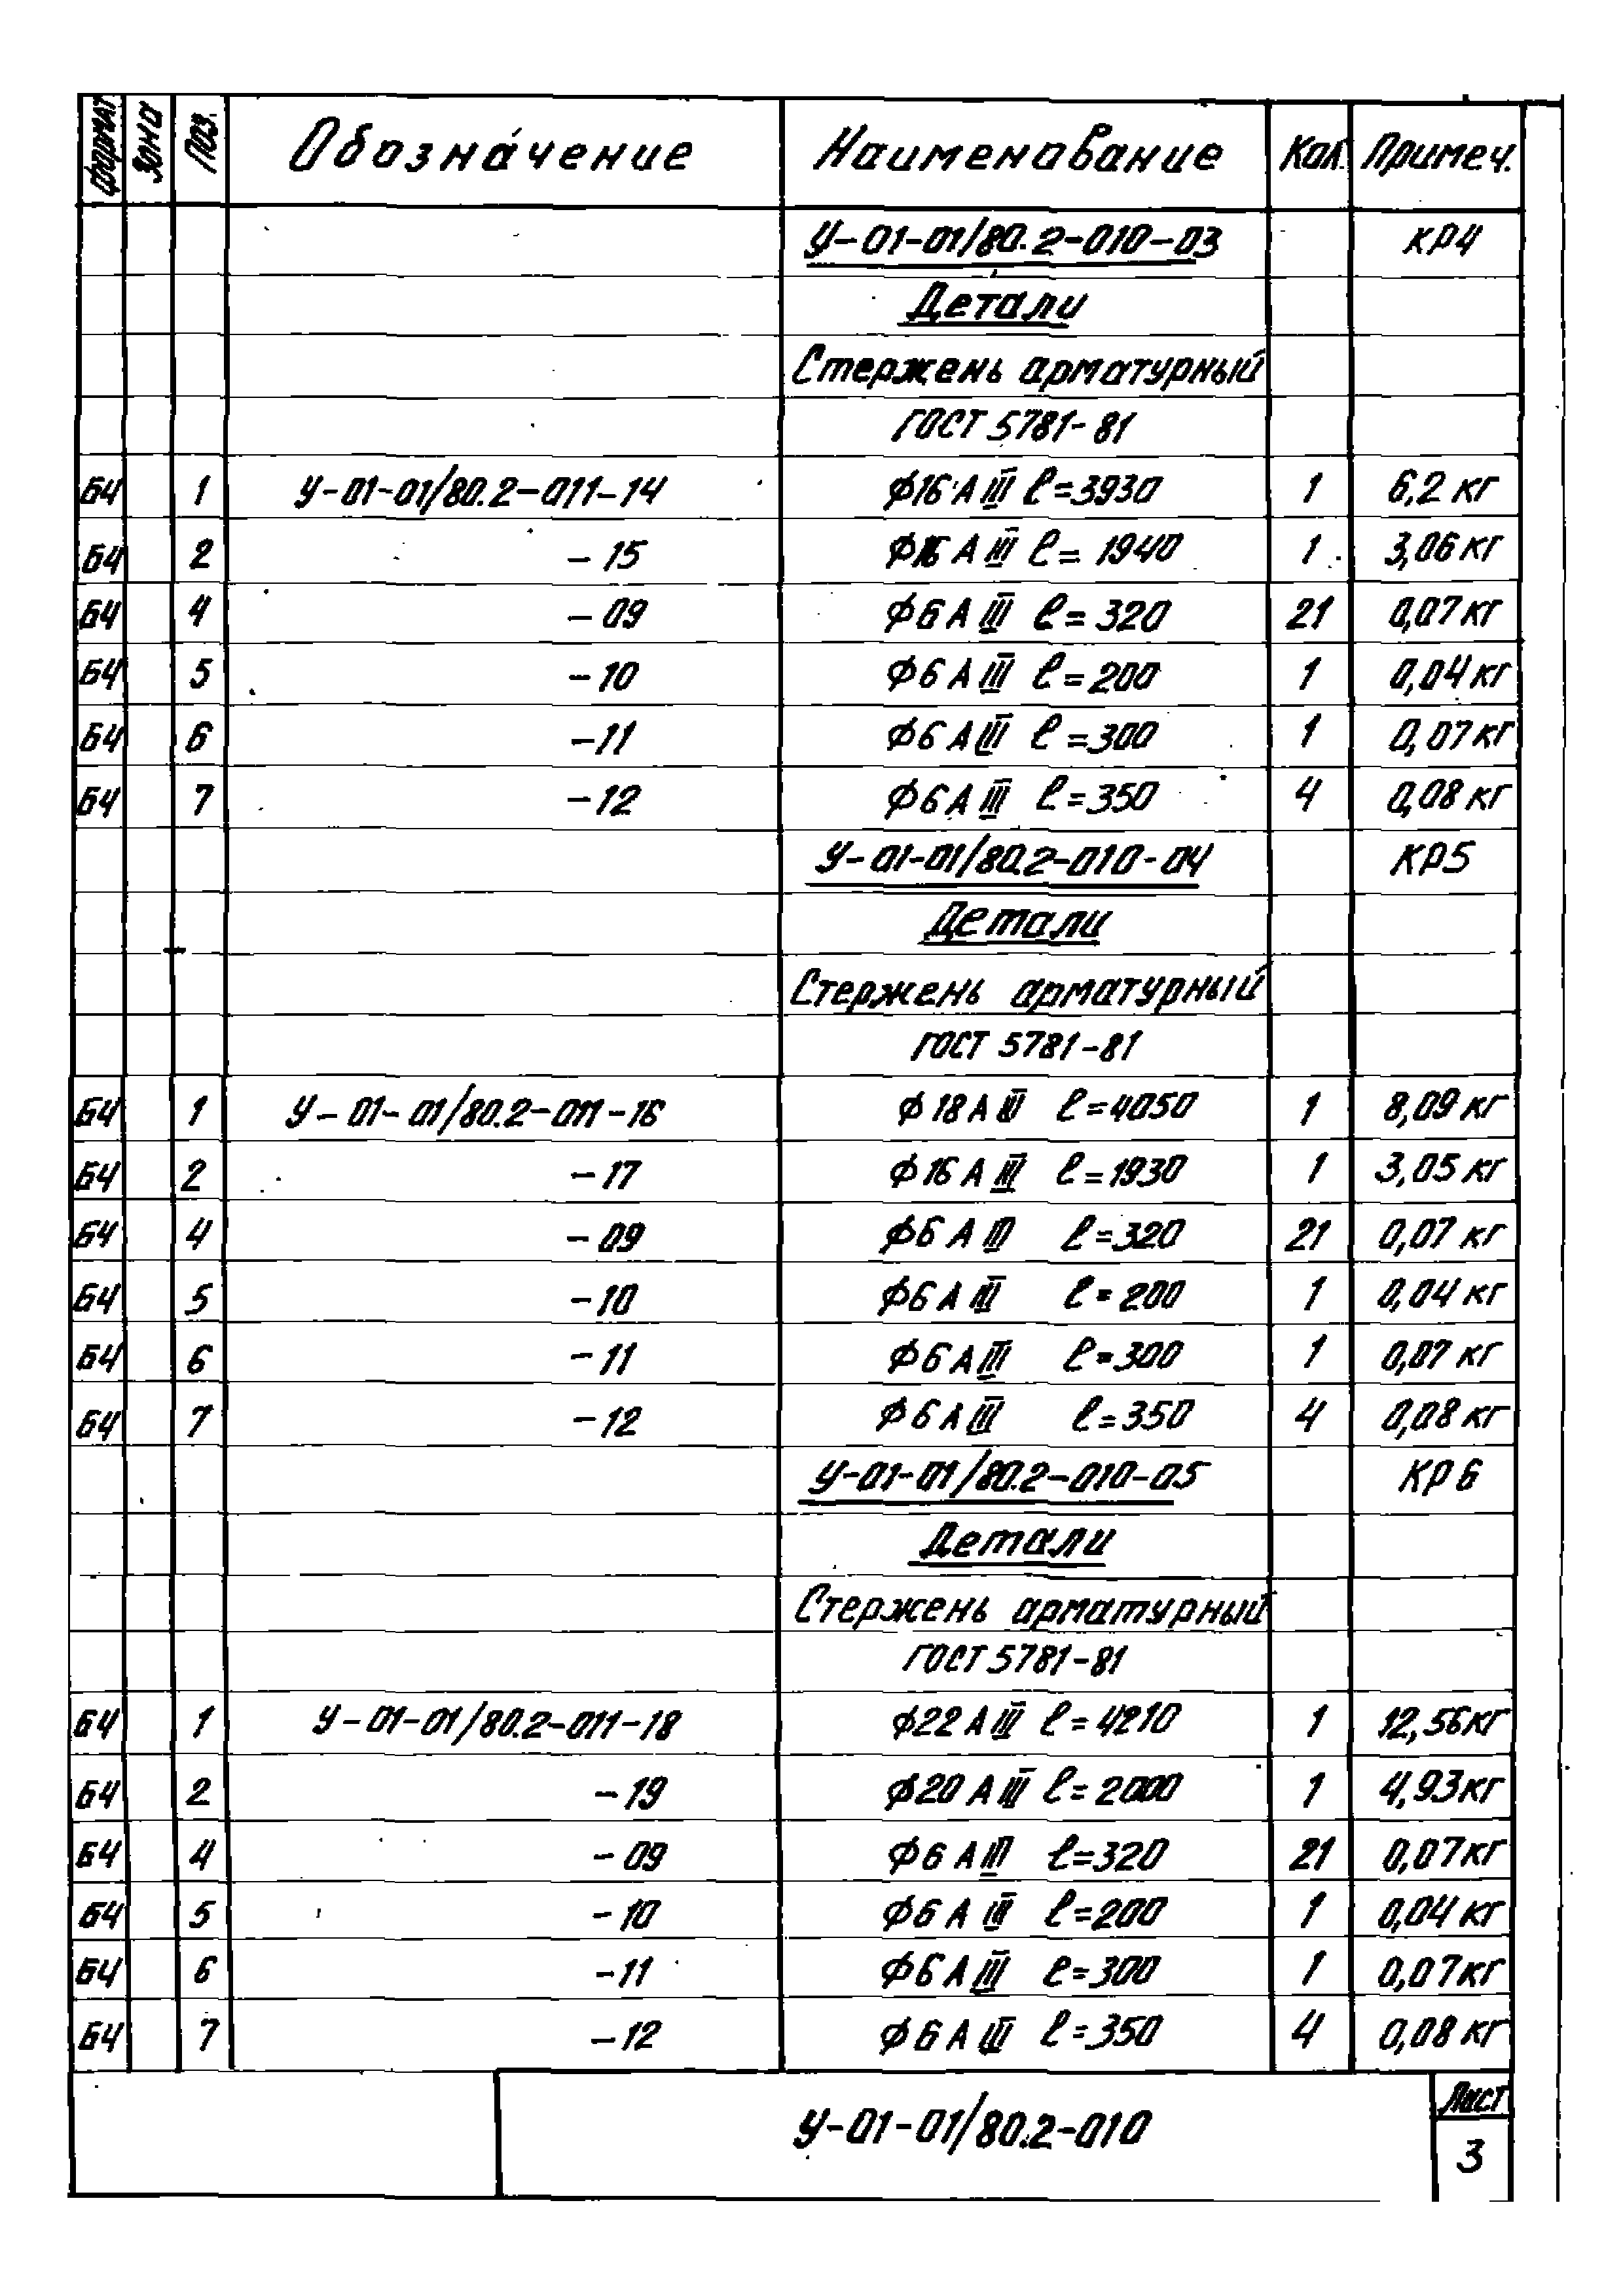 Формат Зона Поз. Обозначение Наименование Кол. Примеч.
У-01-01/80.2-010-03 КР4
Детали
Стержень арматурный
ГОСТ 5781-81
БЧ 1 У-01-01/80.2-011-14 Ф16 А III ℓ=3930 1 6,2 кг
БЧ 2 -15 Ф16 А III ℓ=1940 1 3,06 кг
БЧ 4 -09 Ф6 А III ℓ=320 21 0,07 кг
БЧ 5 -10 Ф6 А III ℓ=200 1 0,04 кг
БЧ 6 -11 Ф6 А III ℓ=300 1 0,07 кг
БЧ 7 -12 Ф6 А III ℓ=350 4 0,08 кг
У-01-01/80.2-010-04 КР5
Детали
Стержень арматурный
ГОСТ 5781-81
БЧ 1 У-01-01/80.2-011-16 Ф18 А III ℓ=4050 1 8,09 кг
БЧ 2 -17 Ф16 А III ℓ=1930 1 3,05 кг
БЧ 4 -09 Ф6 А III ℓ=320 21 0,07 кг
БЧ 5 -10 Ф6 А III ℓ=200 1 0,04 кг
БЧ 6 -11 Ф6 А III ℓ=300 1 0,07 кг
БЧ 7 -12 Ф6 А III ℓ=350 4 0,08 кг
У-01-01/80.2-010-05 КР6
Детали
Стержень арматурный
ГОСТ 5781-81
БЧ 1 У-01-01/80.2-011-18 Ф22 А III ℓ=4210 1 12,56 кг
БЧ 2 -19 Ф20 А III ℓ=2000 1 4,93 кг
БЧ 4 -09 Ф6 А III ℓ=320 21 0,07 кг
БЧ 5 -10 Ф6 А III ℓ=200 1 0,04 кг
БЧ 6 -11 Ф6 А III ℓ=300 1 0,07 кг
БЧ 7 -12 Ф6 А III ℓ=350 4 0,08 кг
У-01-01/80.2-010
Лист
3